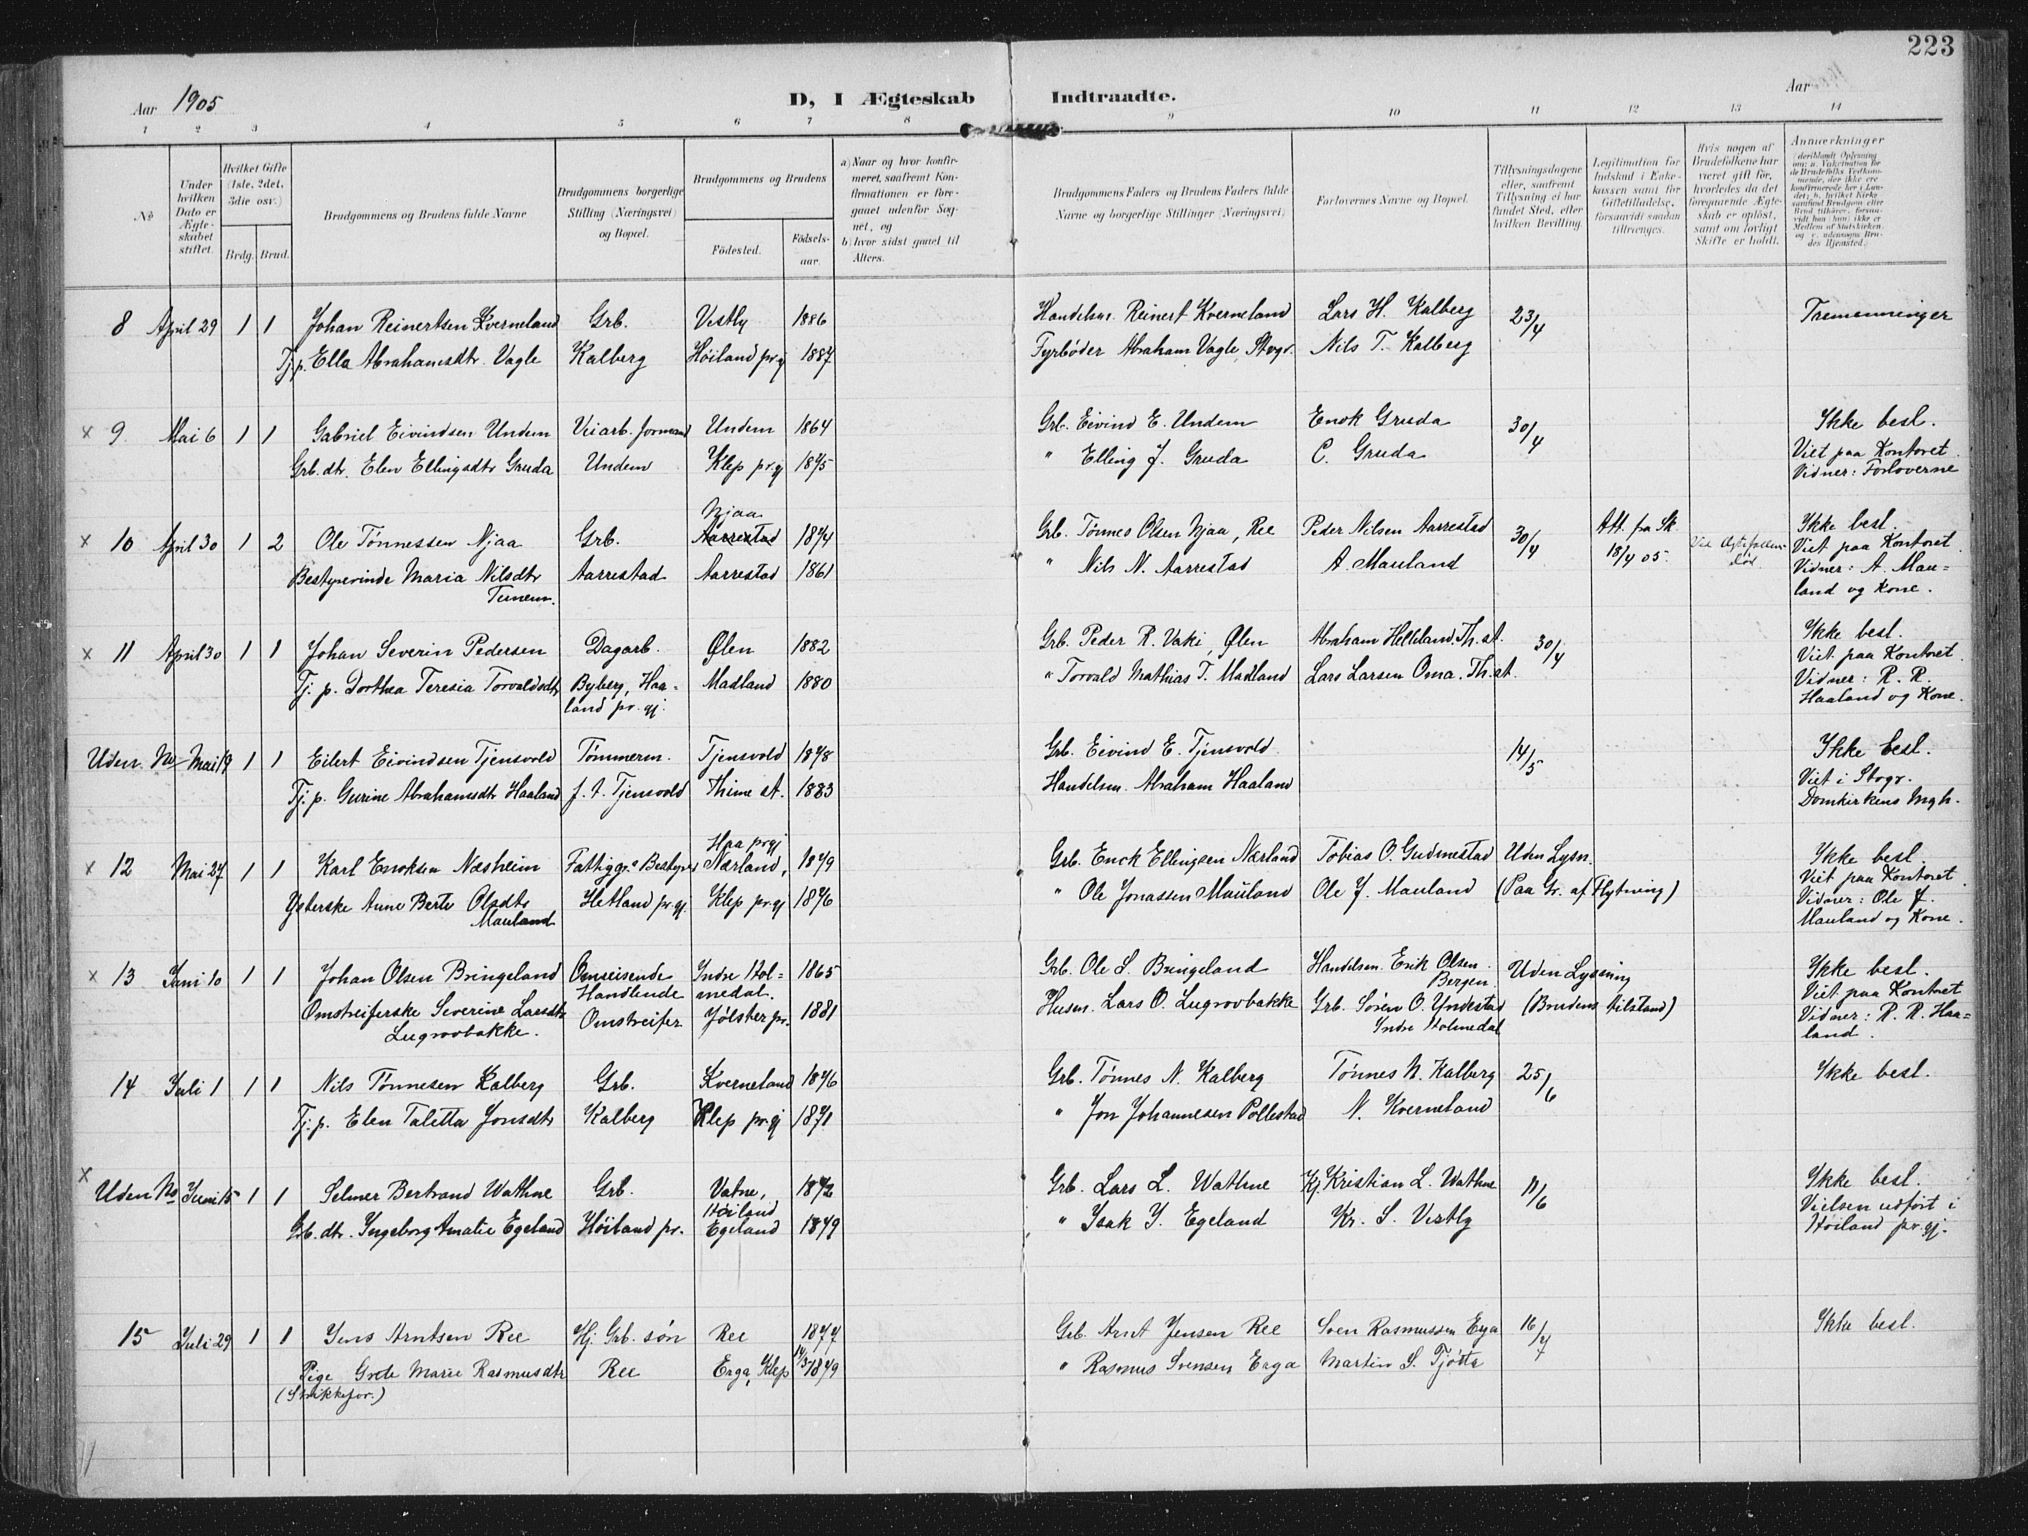 223
Aar 1905 D, I Ægteskab Indtraadte. Aar
1 2 3 4 5 6 7 8 9 10 11 12 13 14
No
Under hvilken Dato er Ægteskabet stiftet.
Hvilket Gifte (1ste, 2det, 3die osv.)
Brdg. Brud.
Brudgommens og Brudens fulde Navne
Brudgommens borgerlige Stilling (Næringsvei) og Bopæl.
Brudgommens og Brudens
Fødested. Fødselsaar.
a) Naar og hvor konfirmeret, saafremt Konfirmationen er foregaaet udenfor Sognet, og
b) hvor sidst gaaet til Alters.
Brudgommens Faders og Brudens Faders fulde Navne og borgerlige Stillinger (Næringsvei)
Forlovernes Navne og Bopæl.
Tillysningsdagene eller, saafremt Tillysning ei har fundet Sted, efter hvilken Bevilling.
Legitimation for Indskud i Enkekassen samt for Giftetilladelse, forsaavidt saadan tiltrænges.
Hvis nogen af Brudefolkene har været gift før, hvorledes da det foregaaende Ægteskab er opløst, samt om lovligt Skifte er holdt.
Anmærkninger
8 April 29 1 1 Johan Reinertsen Kverneland Grb. Vestly 1886 Handelsm. Reinert Kverneland Lars H. Kalberg 23/4 Tremenninger
Tj. p. Ella Abrahamsdtr. Vagle Kalberg Høiland pr.gj 1887 Fyrbøder Abraham Vagle, Stvgr. Nils T. Kalberg
x 9 Mai 6 1 1 Gabriel Eivindsen Undem Veiarb. formand Undem 1864 Grb. Eivind E. Undem Enok Gruda 30/4 Ikke besl.
Grb. dtr. Elen Ellingsdtr Gruda Undem Klep pr.gj 1875 " Elling J. Gruda C. Gruda Viet paa Kontoret
Vidner: Forloverne
Njaa
x 10 April 30 1 2 Ole Tønnessen Njaa Grb. Aarrestad 1874 Grb. Tønnes Olsen Njaa, Ree Peder Nilsen Aarrestad 30/4 Att. fra Sk. 18/4 05. Ikke besl.
Bestyrerinde Maria Nilsdtr Aarrestad Aarrestad 1861 " Nils N. Aarrestad A Mauland Viet paa Kontoret
Vidner: A. Mau=
land og Kone.
x 11 April 30 1 1 Johan Severin Pedersen Dagarb. Ølen 1882 Grb. Peder R. Vaki, Ølen Abraham Helleland. Th. st. 30/4 Ikke besl.
Tj. p. Dorthea Teresia Torvaldsdtr Byberg, Haa= Madland 1880 " Torvald Mathias T. Madland Lars Larsen Oma. Th. st. Viet paa Kontoret
land pr. gj. Vidner: R. R.
Haaland og Kone.
Uden No Mai 19 1 1 Eilert Eivindsen Tjensvold Tømmerm. Tjensvold 1878 Grb. Eivind E. Tjensvold 14/5 Ikke besl.
Tj. p. Gurine Abrahamsdtr Haaland f. t. Tjensvold Thime st. 1883 Handelsm. Abraham Haaland Viet i Stvgr.
Domkirkens Mgh.
Haa prgj
x 12 Mai 27 1 1 Karl Enoksen Næsheim Fattiggr. Bestyrer Nærland, 1879 Grb. Enok Ellingsen Nærland Tobias O. Gudmestad Uden Lysn. Ikke besl.
Ysterske Anne Berte Olsdtr Hetland pr gj. Klep pr gj 1876 " Ole Jonassen Mauland Ole J. Mauland (Paa Gr. af Flytning) Viet paa Kontoret
Mauland Vidner: Ole J.
Mauland og Kone.
x 13 Juni 10 1 1 Johan Olsen Bringeland Omreisende Indre Hol= 1865 Grb. Ole S. Bringeland Handelsm. Erik Olsen Uden Lysning Ikke besl.
Handlende medal. Bergen Viet paa Kontoret
Omstreiferske Severine Larsdtr Omstreifer Jølster pr. 1881 Husm. Lars O. Lugrovbakke Grb. Søren O. Yndestad (Brudens tilstand) Vidner: R. R. Haa=
Lugrovbakke. Indre Holmedal land.
14 Juli 1 1 1 Nils Tønnesen Kalberg Grb. Kverneland 1876 Grb. Tønnes N. Kalberg Tønnes N. Kalberg 25/6 Ikke besl.
Tj. p. Elen Taletta Jonsdtr Kalberg Klep pr gj 1871 " Jon Johannesen Pollestad N. Kverneland
x
Uden No Juni 15 1 1 Selmer Bertrand Wathne Grb. Vatne, 1872 Grb. Lars L. Wathne Kj. Kristian L. Wathne 11/6 Ikke besl.
Høiland Vielsen udført i
Grb. dtr. Ingeborg Amalie Egeland Høiland pr. Egeland 1879 " Isak I. Egeland Kr. S. Vestly Høiland pr. gj.
15 Juli 29 1 1 Jens Arntsen Ree Hj. Grb. søn Ree 1877 Grb. Arnt Jensen Ree Sven Rasmussen Erga 16/7 Ikke besl.
Pige Grete Marie Rasmusdtr Ree Erga, Klep 14/3 1879 " Rasmus Svensen Erga Martin S. Tjøtta
(Strikkefor.)